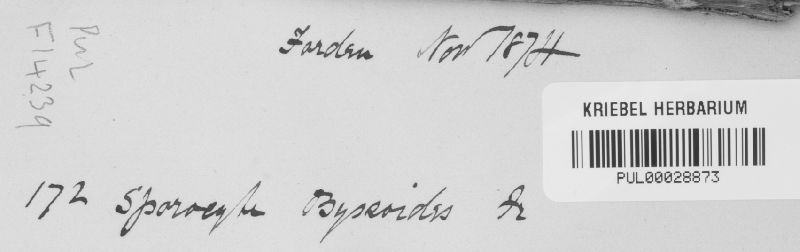 Forden Nov 1874
PUL
F14239
KRIEBEL HERBARIUM
PUL00028873
172 Sporocybe Byssoides Fr